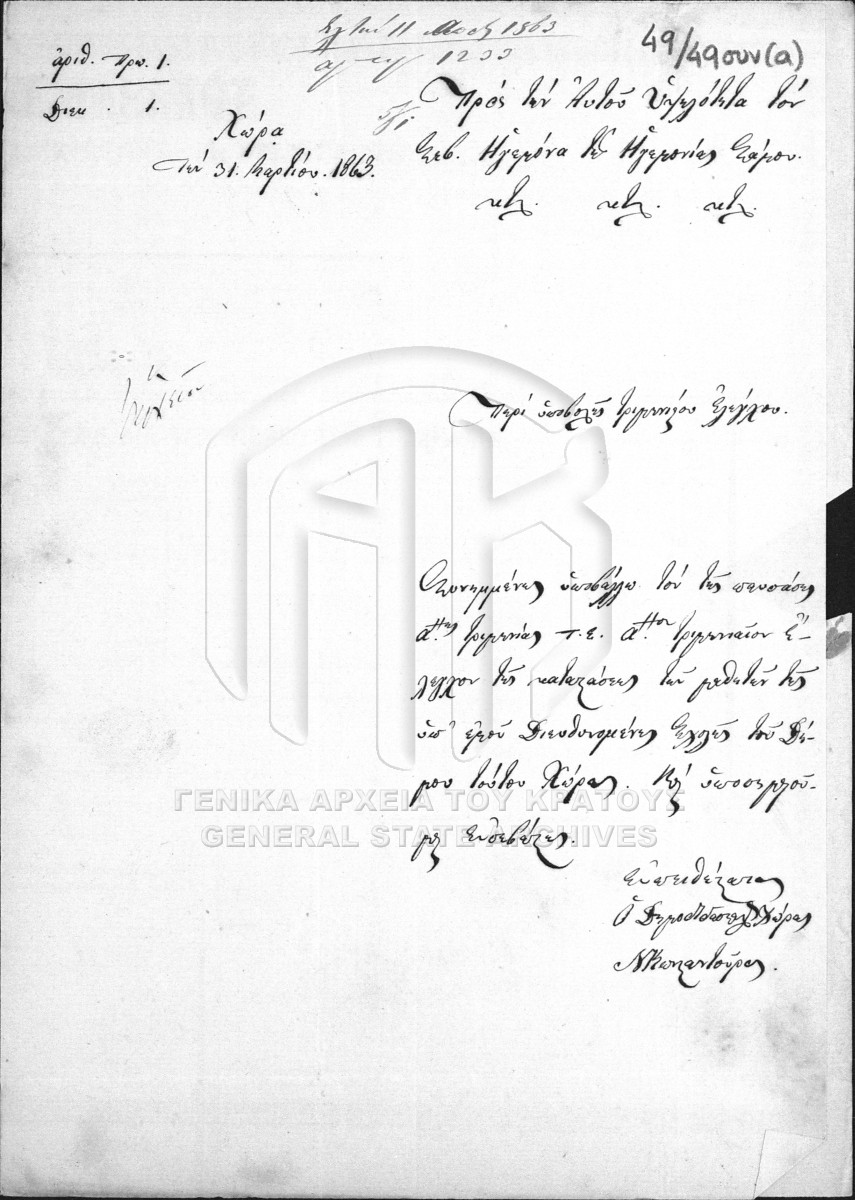 49/49συν(α)
1863
1233
ἀριθ. Πρω. 1.
Διεκ. 1.
Χώρα
τὴν 31. Μαρτίου. 1863.
Πρὸς τὴν Αὐτοῦ Ὑψηλότητα τὸν
Σεβ. Ἡγεμόνα τῆς Ἡγεμονίας Σάμου.
κτλ. κτλ. κτλ.
Περὶ ὑποβολῆς τριμηνιαίου ἐλέγχου.
Συνημμένως ὑποβάλλω τὸν τῆς παυσάσης
αʹ.ης τριμηνίας τ.ἔ. αʹ.ον τριμηνιαῖον Ἔ-
λεγχον τῆς καταστάσεως τῶν μαθητῶν τῆς
ὑπ' ἐμοῦ Διευθυνομένης Σχολῆς τοῦ Δή-
μου τούτου Χώρας. Καὶ ὑποσημειοῦ-
μαι Εὐσεβάστως.
Εὐπειθέστατος
Ὁ Δημοδιδάσκαλος Χώρας
ΓΕΝΙΚΑ ΑΡΧΕΙΑ ΤΟΥ ΚΡΑΤΟΥΣ
GENERAL STATE ARCHIVES